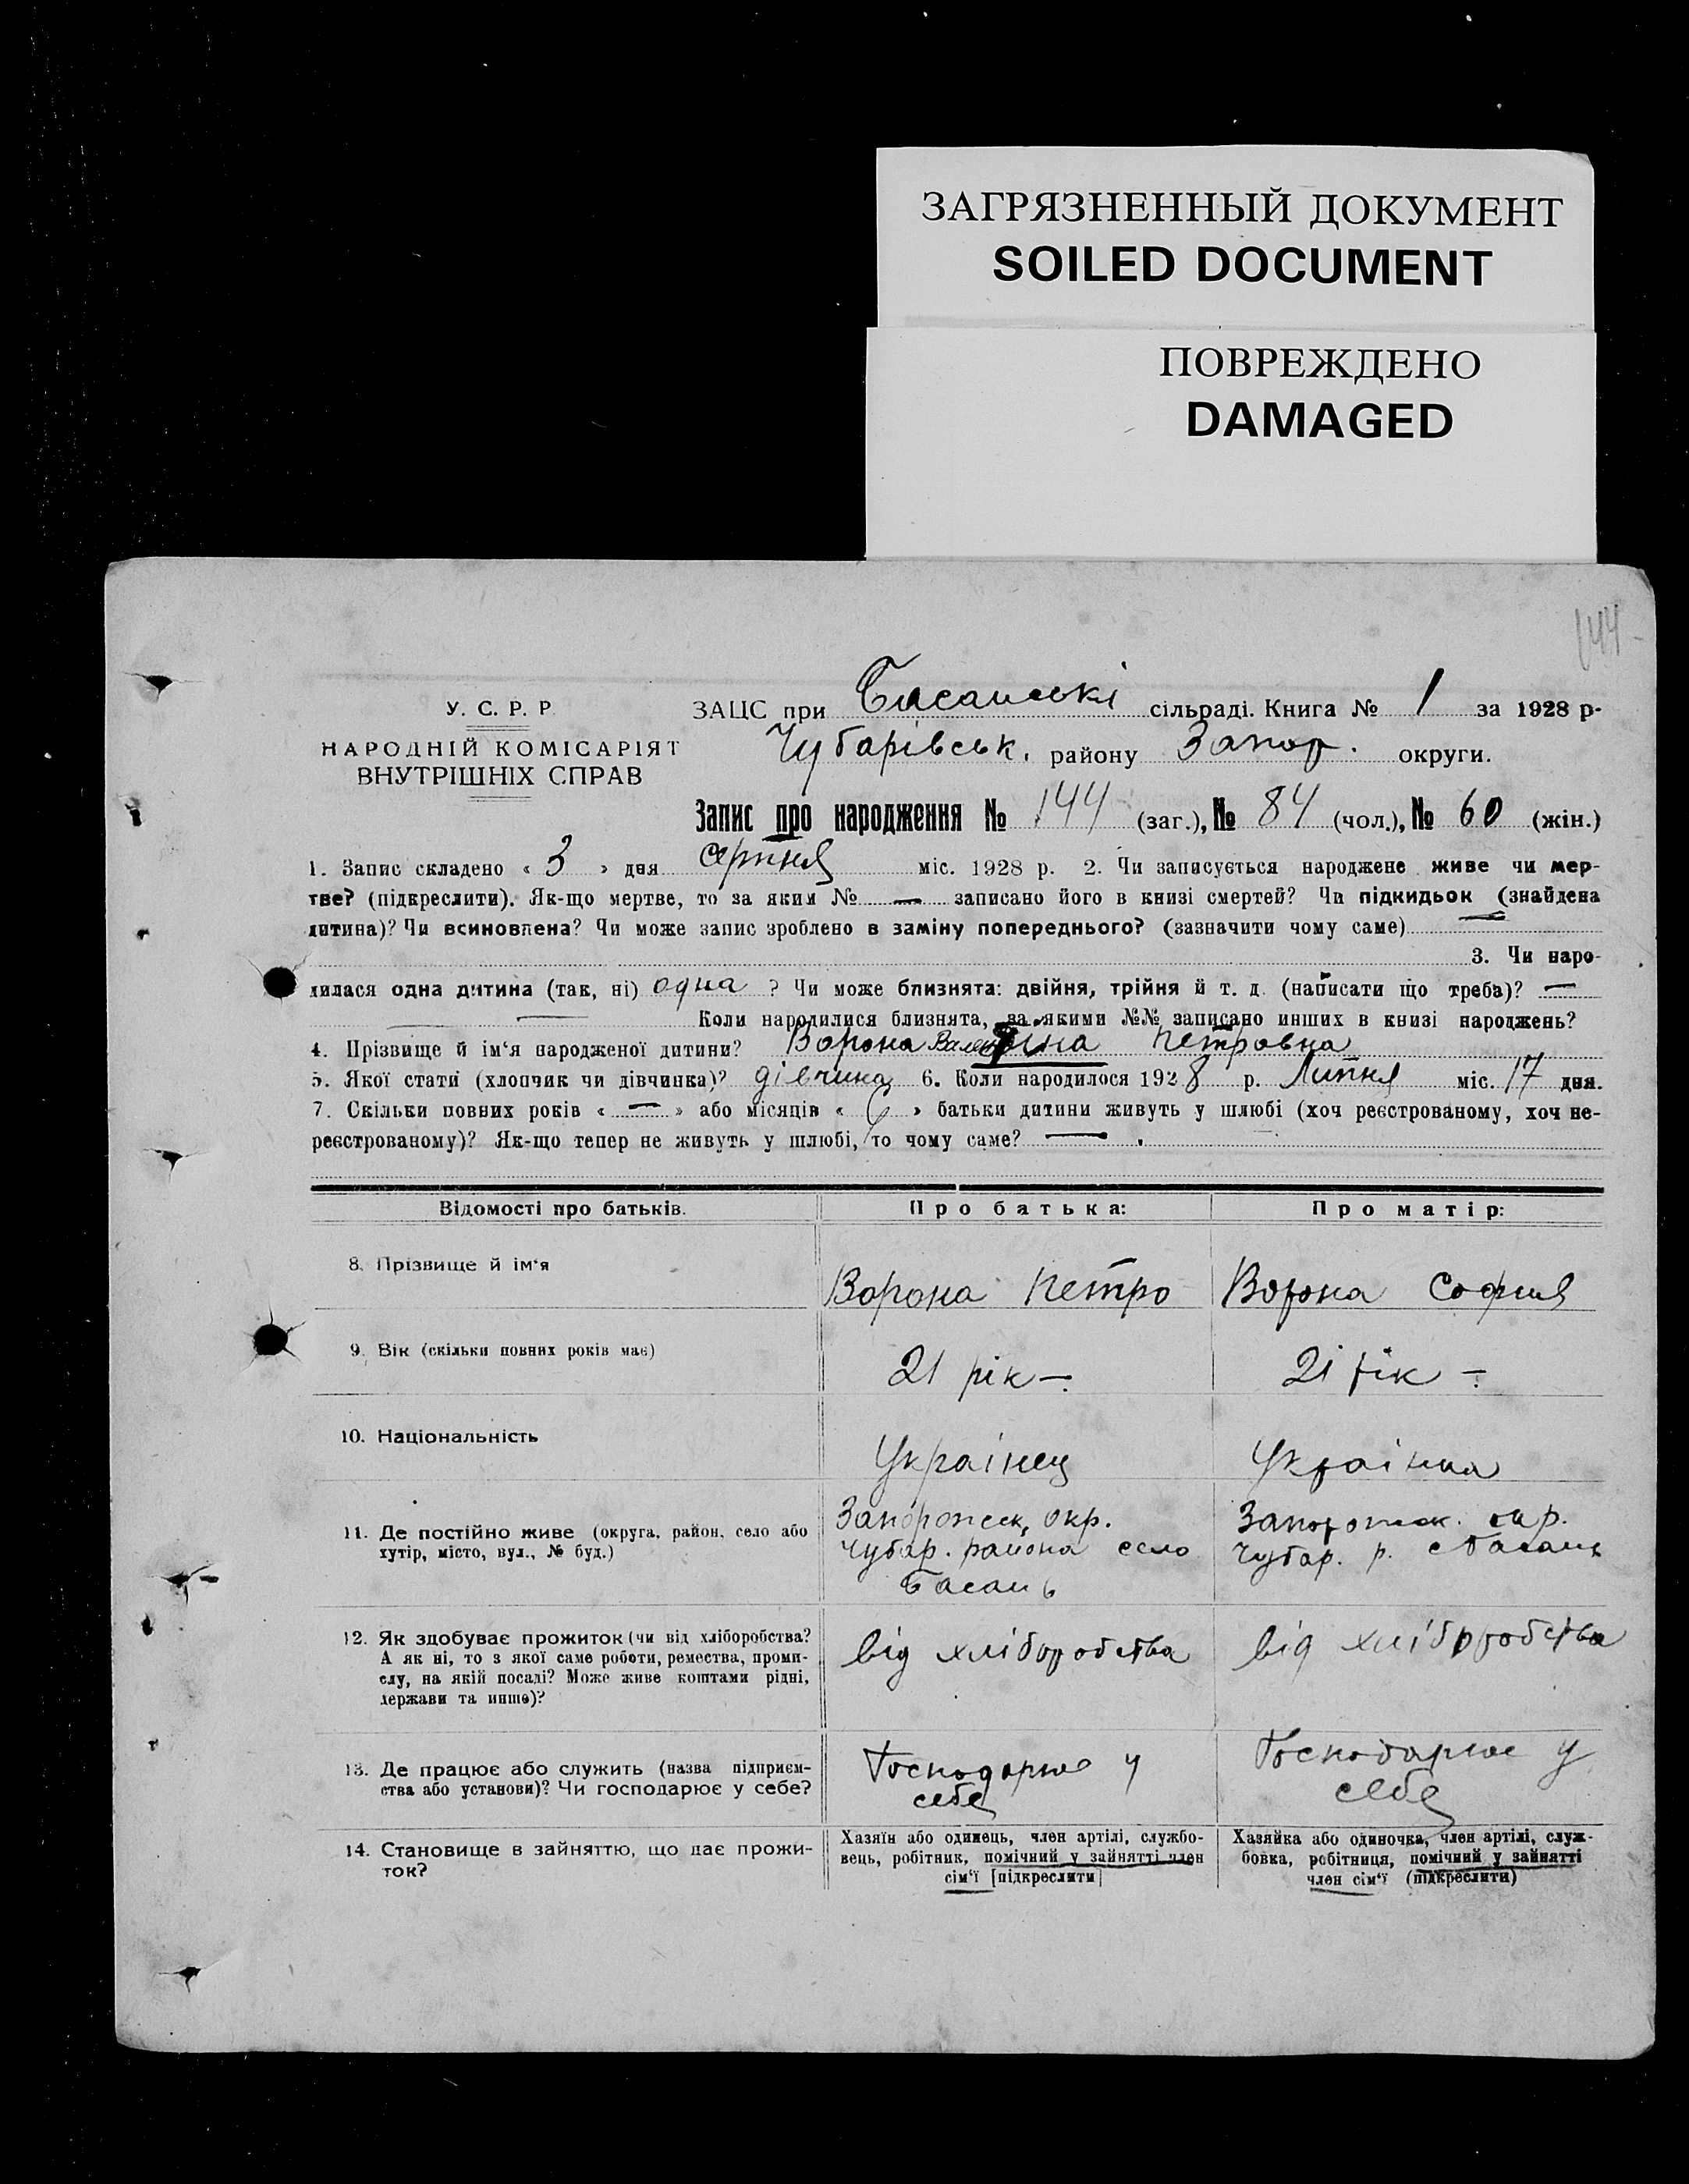 ЗАГРЯЗНЕННЫЙ ДОКУМЕНТ
SOILED DOCUMENT
ПОВРЕЖДЕНО
DAMAGED
144
У. С. Р. Р.
НАРОДНІЙ КОМІСАРІЯТ
ВНУТРІШНІХ СПРАВ
ЗАЦС при Басанські сільраді. Книга № 1 за 1928 р.
Чубарівськ. району Запор. округи.
Запис про народження № 144 (заг.), № 84 (чол.), № 60 (жін.)
1. Запис складено « 3 » дня серпня міс. 1928 р. 2. Чи записується народжене живе чи мер-
тве? (підкреслити). Як-що мертве, то за яким № — записано його в книзі смертей? Чи підкидьок (знайдена
дитина)? Чи всиновлена? Чи може запис зроблено в заміну попереднього? (зазначити чому саме) —
3. Чи наро-
дилася одна дитина (так, ні) одна ? Чи може близнята: двійня, трійня й т. д. (написати що треба)? —
— Коли народилися близнята, за якими №№ записано инших в книзі народжень?
4. Прізвище й ім'я народженої дитини? Ворона Петровна
5. Якої стати (хлопчик чи дівчинка)? дівчина 6. Коли народилося 1928 р. Липня міс. 17 дня.
7. Скільки повних років « — » або місяців « 6 » батьки дитини живуть у шлюбі (хоч реєстрованому, хоч не-
реєстрованому)? Як-що тепер не живуть у шлюбі, то чому саме? — .
Відомості про батьків. Про батька: Про матір:
8. Прізвище й ім'я
Ворона Петро Ворона София
9. Вік (скільки повних років має)
21 рік —. 21 рік —.
10. Національність
Українец Українка
11. Де постійно живе (округа, район, село або
хутір, місто, вул., № буд.)
Запорожск. окр.
Чубар. района село
Басань
Запорожск. окр.
Чубар. р. с Басань
12. Як здобуває прожиток (чи від хліборобства?
А як ні, то з якої саме роботи, ремества, проми-
слу, на якій посаді? Може живе коштами рідні,
держави та инше)?
від хліборобства від хліборобства
13. Де працює або служить (назва підприєм-
ства або установи)? Чи господарює у себе?
Господарює у
себе
Господарює у
себе
14. Становище в зайняттю, що дає прожи-
ток?
Хазяїн або одинець, член артілі, службо-
вець, робітник, помічний у зайнятті член
сім'ї [підкреслити]
Хазяйка або одиночка, член артілі, служ-
бовка, робітниця, помічний у зайнятті
член сім'ї (підкреслити)